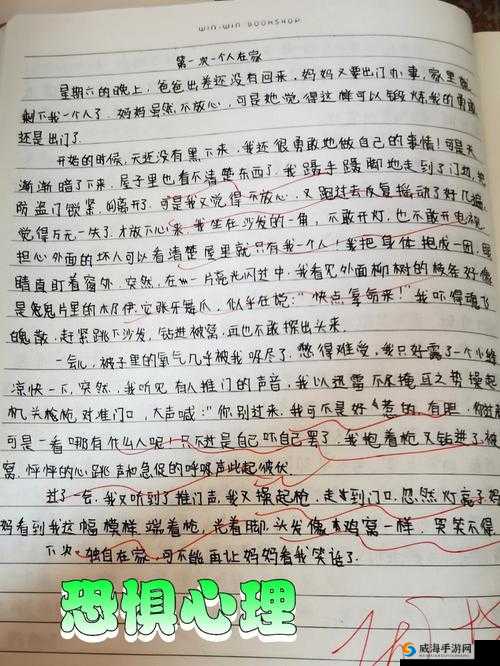 WIN-WIN BOOKSHOP
第一次一个人在家
星期六的晚上，爸爸出差还没有回来，妈妈又要出门办事，家里就
剩下我一个人了。妈妈虽然不放心，可是她觉得这样可以锻炼我的勇敢
还是出门了。
开始的时候，天还没有黑下来，我还很勇敢地做自己的事情！可是天
渐渐暗了下来，屋子里也看不清楚东西了。我蹑手蹑脚地走到了门边，把
防盗门锁紧，可是我又觉得不放心，又跑过去反复摇动了好几遍，
觉得万无一失了，才放下心来。我坐在沙发的一角，不敢开灯，也不敢开电视，
担心外面的坏人可以看清楚屋里就只有我一个人！我把身体抱成一团，眼
睛直盯着窗外，突然，在一片亮光闪过中，我看见外面柳树的枝条好像
是鬼片里的，它张牙舞爪，似乎在说：“快点，拿命来！”我吓得魂飞
魄散，赶紧跳下沙发，钻进被窝，再也不敢探出头来。
一会儿，被子里的氧气几乎被我吸尽了，憋得难受，我只好露了一个小缝
凉快一下，突然，我听见有人推门的声音，我以迅雷不及掩耳之势操起
机关枪枪对准门口，大声喊：“你别过来，我可不是好惹的，有胆，你过
可是一看哪有什么人呢！只不过是自己吓自己罢了。我抱着枪又钻进了被
窝，怦怦的心跳声和急促的呼吸声此起彼伏
过了一会，我又听到了推门声，我又操起枪，走到门口，忽然灯亮了，妈
妈看到我这幅模样：端着枪，光着脚，头发像鸡窝一样，哭笑不得
下次，独自在家，可不能再让妈妈看我笑话了。
恐惧心理
威海手游网